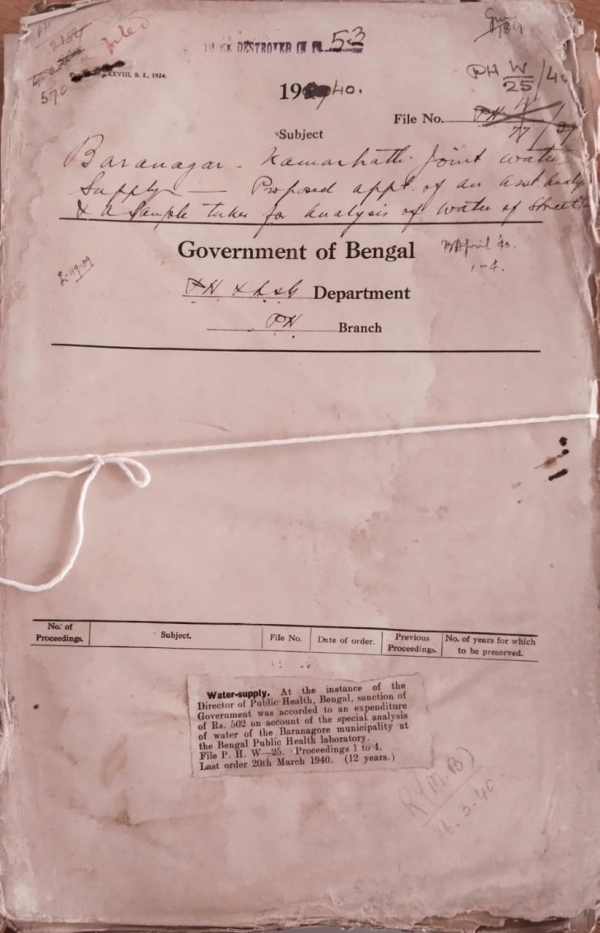 TO BE DESTROYED IN 53
filed
570
XXVIII. S. I., 1924.
1940.
PH W/25/40
File No.
Subject
Baranagar - Kamarhati Joint water
Supply — Proposed appt. of an asst
& a sample taken for analysis of water of
Government of Bengal
B April '40.
1-4.
PH & LSG Department
PH Branch
No. of Proceedings.
Subject.
File No.
Date of order.
Previous Proceedings.
No. of years for which to be preserved.
Water-supply. At the instance of the
Director of Public Health, Bengal, sanction of
Government was accorded to an expenditure
of Rs. 502 on account of the special analysis
of water of the Baranagore municipality at
the Bengal Public Health laboratory.
File P. H. W—25. Proceedings 1 to 4.
Last order 20th March 1940. (12 years.)
R (M.B)
26.3.40